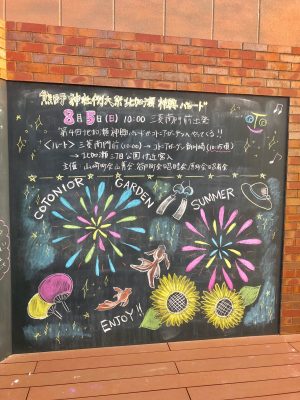 熊野神社例大祭 北加瀬 神輿パレード
8月5日(日) 10:00 三菱南門前出発
第4回 北加瀬神輿パレードがコトニアガーデンへやってくる!!
〈ルート〉三菱南門前(10:00) → コトニアガーデン新川崎
→ 北加瀬 公園 宮入
主催:山崎町会
COTONIOR GARDEN SUMMER
ENJOY!!